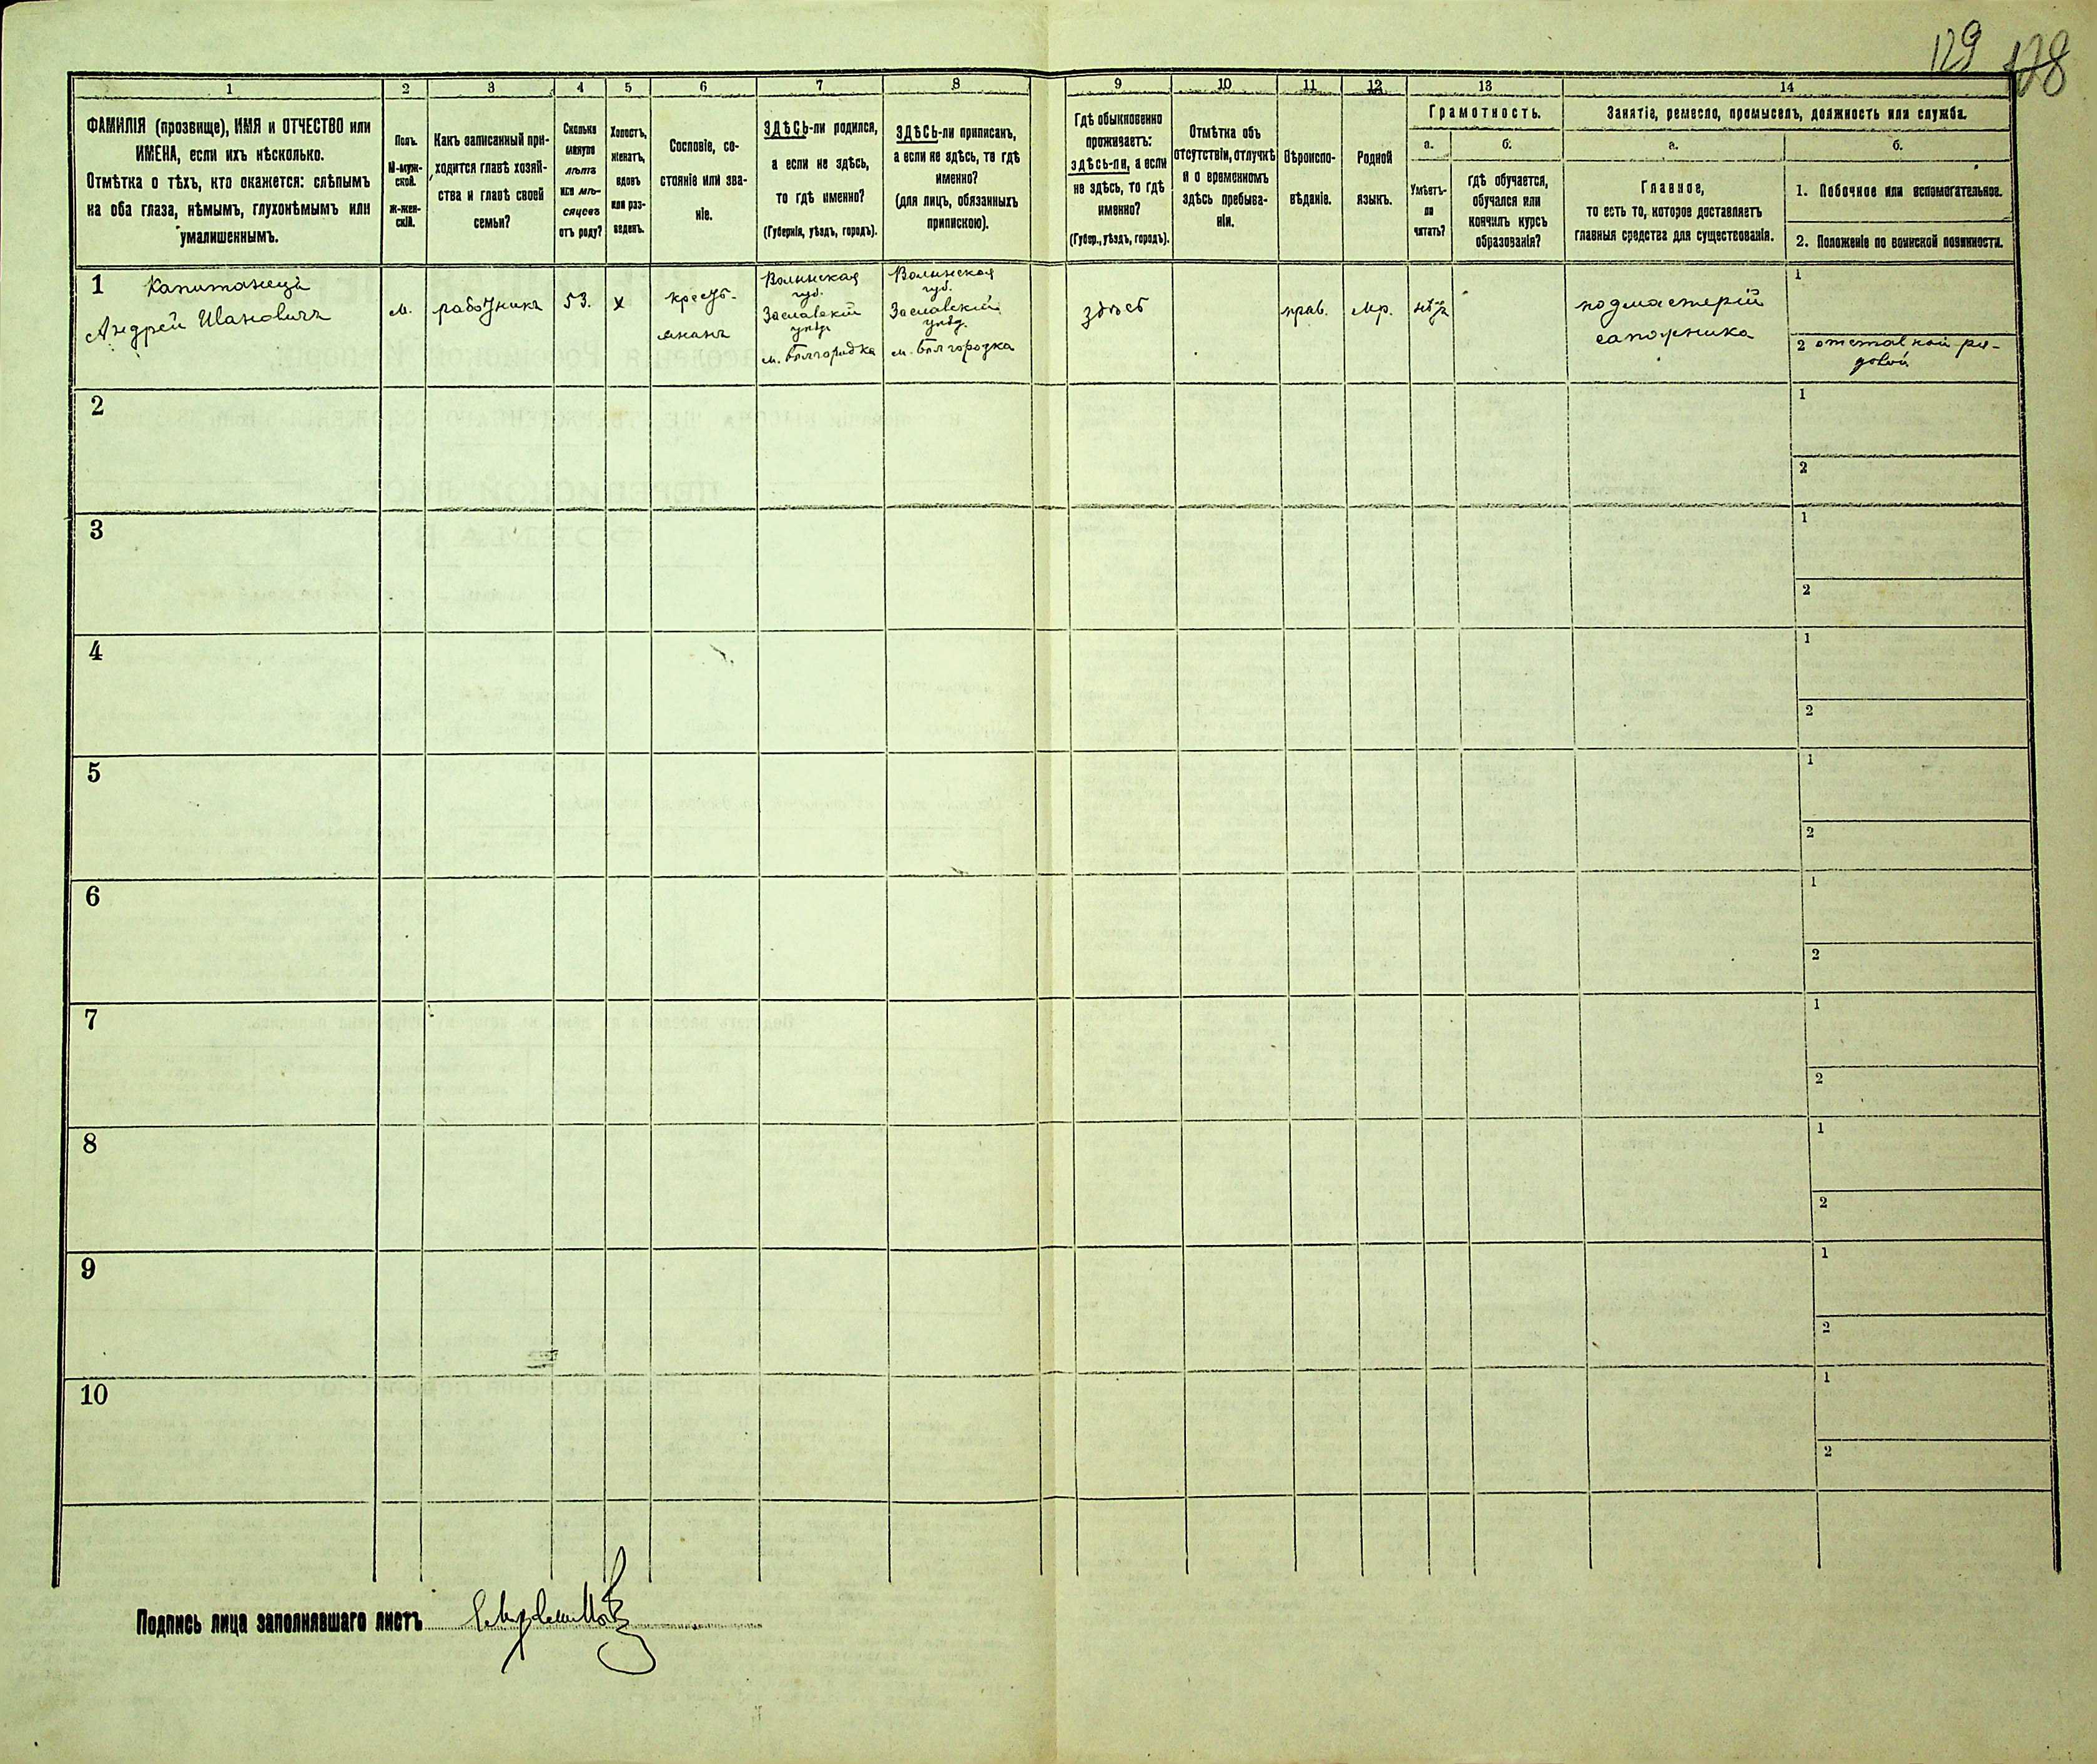 129 128
1 2 3 4 5 6 7 8 9 10 11 12 13 14
ФАМИЛІЯ (прозвище), ИМЯ и ОТЧЕСТВО или
ИМЕНА, если ихъ нѣсколько.
Отмѣтка о тѣхъ, кто окажется: слѣпымъ
на оба глаза, нѣмымъ, глухонѣмымъ или
умалишеннымъ.
Полъ.
М-муж-
ской.
ж-жен-
скій.
Какъ записанный при-
ходится главѣ хозяй-
ства и главѣ своей
семьи?
Сколько
минуло
лѣтъ
или мѣ-
сяцевъ
отъ роду?
Холостъ,
женатъ,
вдовъ
или раз-
веденъ.
Сословіе, со-
стояніе или зва-
ніе.
ЗДѢСЬ-ли родился,
а если не здѣсь,
то гдѣ именно?
(Губернія, уѣздъ, городъ).
ЗДѢСЬ-ли приписанъ,
а если не здѣсь, то гдѣ
именно?
(для лицъ, обязанныхъ
припискою).
Гдѣ обыкновенно
проживаетъ:
здѣсь-ли, а если
не здѣсь, то гдѣ
именно?
(Губер., уѣздъ, городъ).
Отмѣтка объ
отсутствіи, отлучкѣ
и о временномъ
здѣсь пребыва-
ніи.
Вѣроиспо-
вѣданіе.
Родной
языкъ.
Грамотность.
а.
Умѣетъ-
ли
читать?
б.
гдѣ обучается,
обучался или
кончилъ курсъ
образованія?
Занятіе, ремесло, промыселъ, должность или служба.
а.
Главное,
то есть то, которое доставляетъ
главныя средства для существованія.
б.
1. Побочное или вспомогательное.
2. Положеніе по воинской повинности.
1 Капитанецъ
Андрей Ивановичъ
м.
работникъ
53.
х
крест-
янинъ
Волынская
губ.
Заславскій
уѣзд.
м. Бѣлгородка
Волынская
губ.
Заславскій
уѣзд.
м. Бѣлгородка
здѣсь
прав.
Мр.
нѣтъ
подмастерій
сапожника
1
2 отставной ря-
довой
2
1
2
3
1
2
4
1
2
5
1
2
6
1
2
7
1
2
8
1
2
9
1
2
10
1
2
Подпись лица заполнявшаго листъ